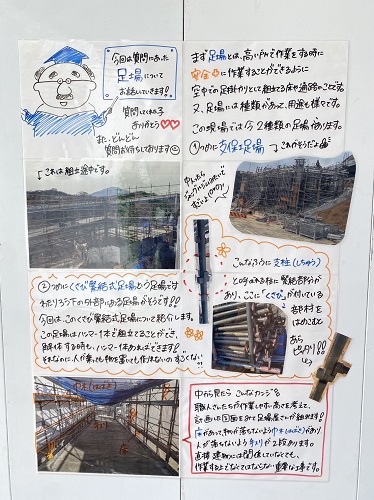 今回は質問にあった
足場について
お話していきます!
質問してくれた子
ありがとう♡♡
また、どんどん
質問お待ちしております
まず足場とは、高い所で作業をする時に
安全に作業することができるように
空中での足掛かりとして組立てる床や通路のことです。
又、足場には種類があって、用途も様々です。
この現場では2種類の足場があります。
①つめに支保工足場
これがそうだよ
これは組立途中です。
中に入ったら
ジャングルジムみたいで
すごいよ
こんなふうに支柱(しちゅう)
と呼ばれる柱に緊結部分が
あり、ここに"くさび"が付いている
部材を
はめこむと
あら
ピッタリ!!
②つめにくさび緊結式足場という足場です
わたりろう下の外部にある足場がそうです!!
今回は、このくさび緊結式足場について紹介します。
この足場はハンマー1本で組立てることができ、
解体する時も、ハンマー1本あればできます!
それなのに人が乗っても物を置いても
中から見たらこんなカンジ
職人さんたちが作業しやすい高さを考えて、
計画した図面をみて足場屋さんが組みます!
床があって、物が落ちないよう巾木(はばき)があり
人が落ちないよう手スリが2段あります。
直接建物には関係していなくても、
作業するうえでなくてはならない重要な工事です。
手スリ
巾木
床